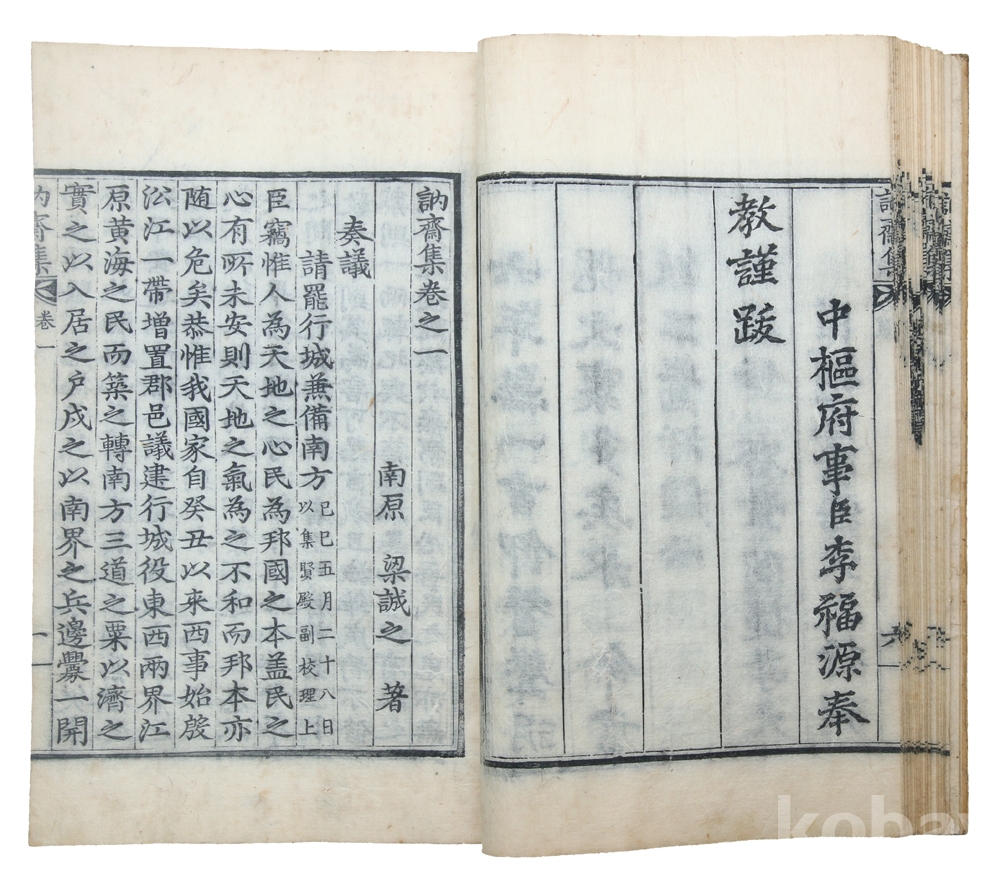 中樞府事臣李福源奉
教謹跋
訥齋集卷之一
南原 梁誠之 著
奏議
請罷行城兼備南方 己巳五月二十八日以集賢殿副校理上
臣竊惟人為天地之心民為邦國之本盖民之
心有所未安則天地之氣為之不和而邦本亦
随以危矣恭惟我國家自癸丑以来西事始殷
沿江一帶增置郡邑議建行城役東西兩界江
原黄海之民而築之轉南方三道之粟以濟之
實之以入居之户戍之以南界之兵邊釁一開
訥齋集 卷一 一
koba